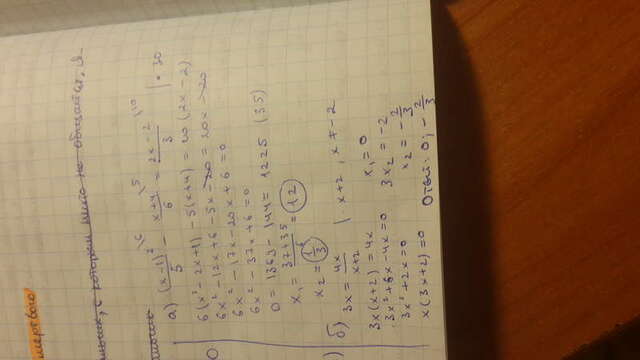 мертвого
с которым никто не общается. Я
а) (x-1)²/5 \6 - x+4/6 \5 = 2x-2/3 \10 | · 30
6(x² - 2x+1) - 5(x+4) = 20(2x-2)
6x² - 12x + 6 - 5x - 20 = 20x - 20
6x² - 17x - 20x + 6 = 0
6x² - 37x + 6 = 0
D = 1369 - 144 = 1225 (35)
x₁ = 37+35/6 = 12
x₂ = 1/3
б) 3x = 4x/x+2 | · x+2, x ≠ -2
3x(x+2) = 4x
3x² + 6x - 4x = 0
3x² + 2x = 0
x(3x+2) = 0
x₁ = 0
3x₂ = -2
x₂ = -2/3
Ответ: 0; -2/3